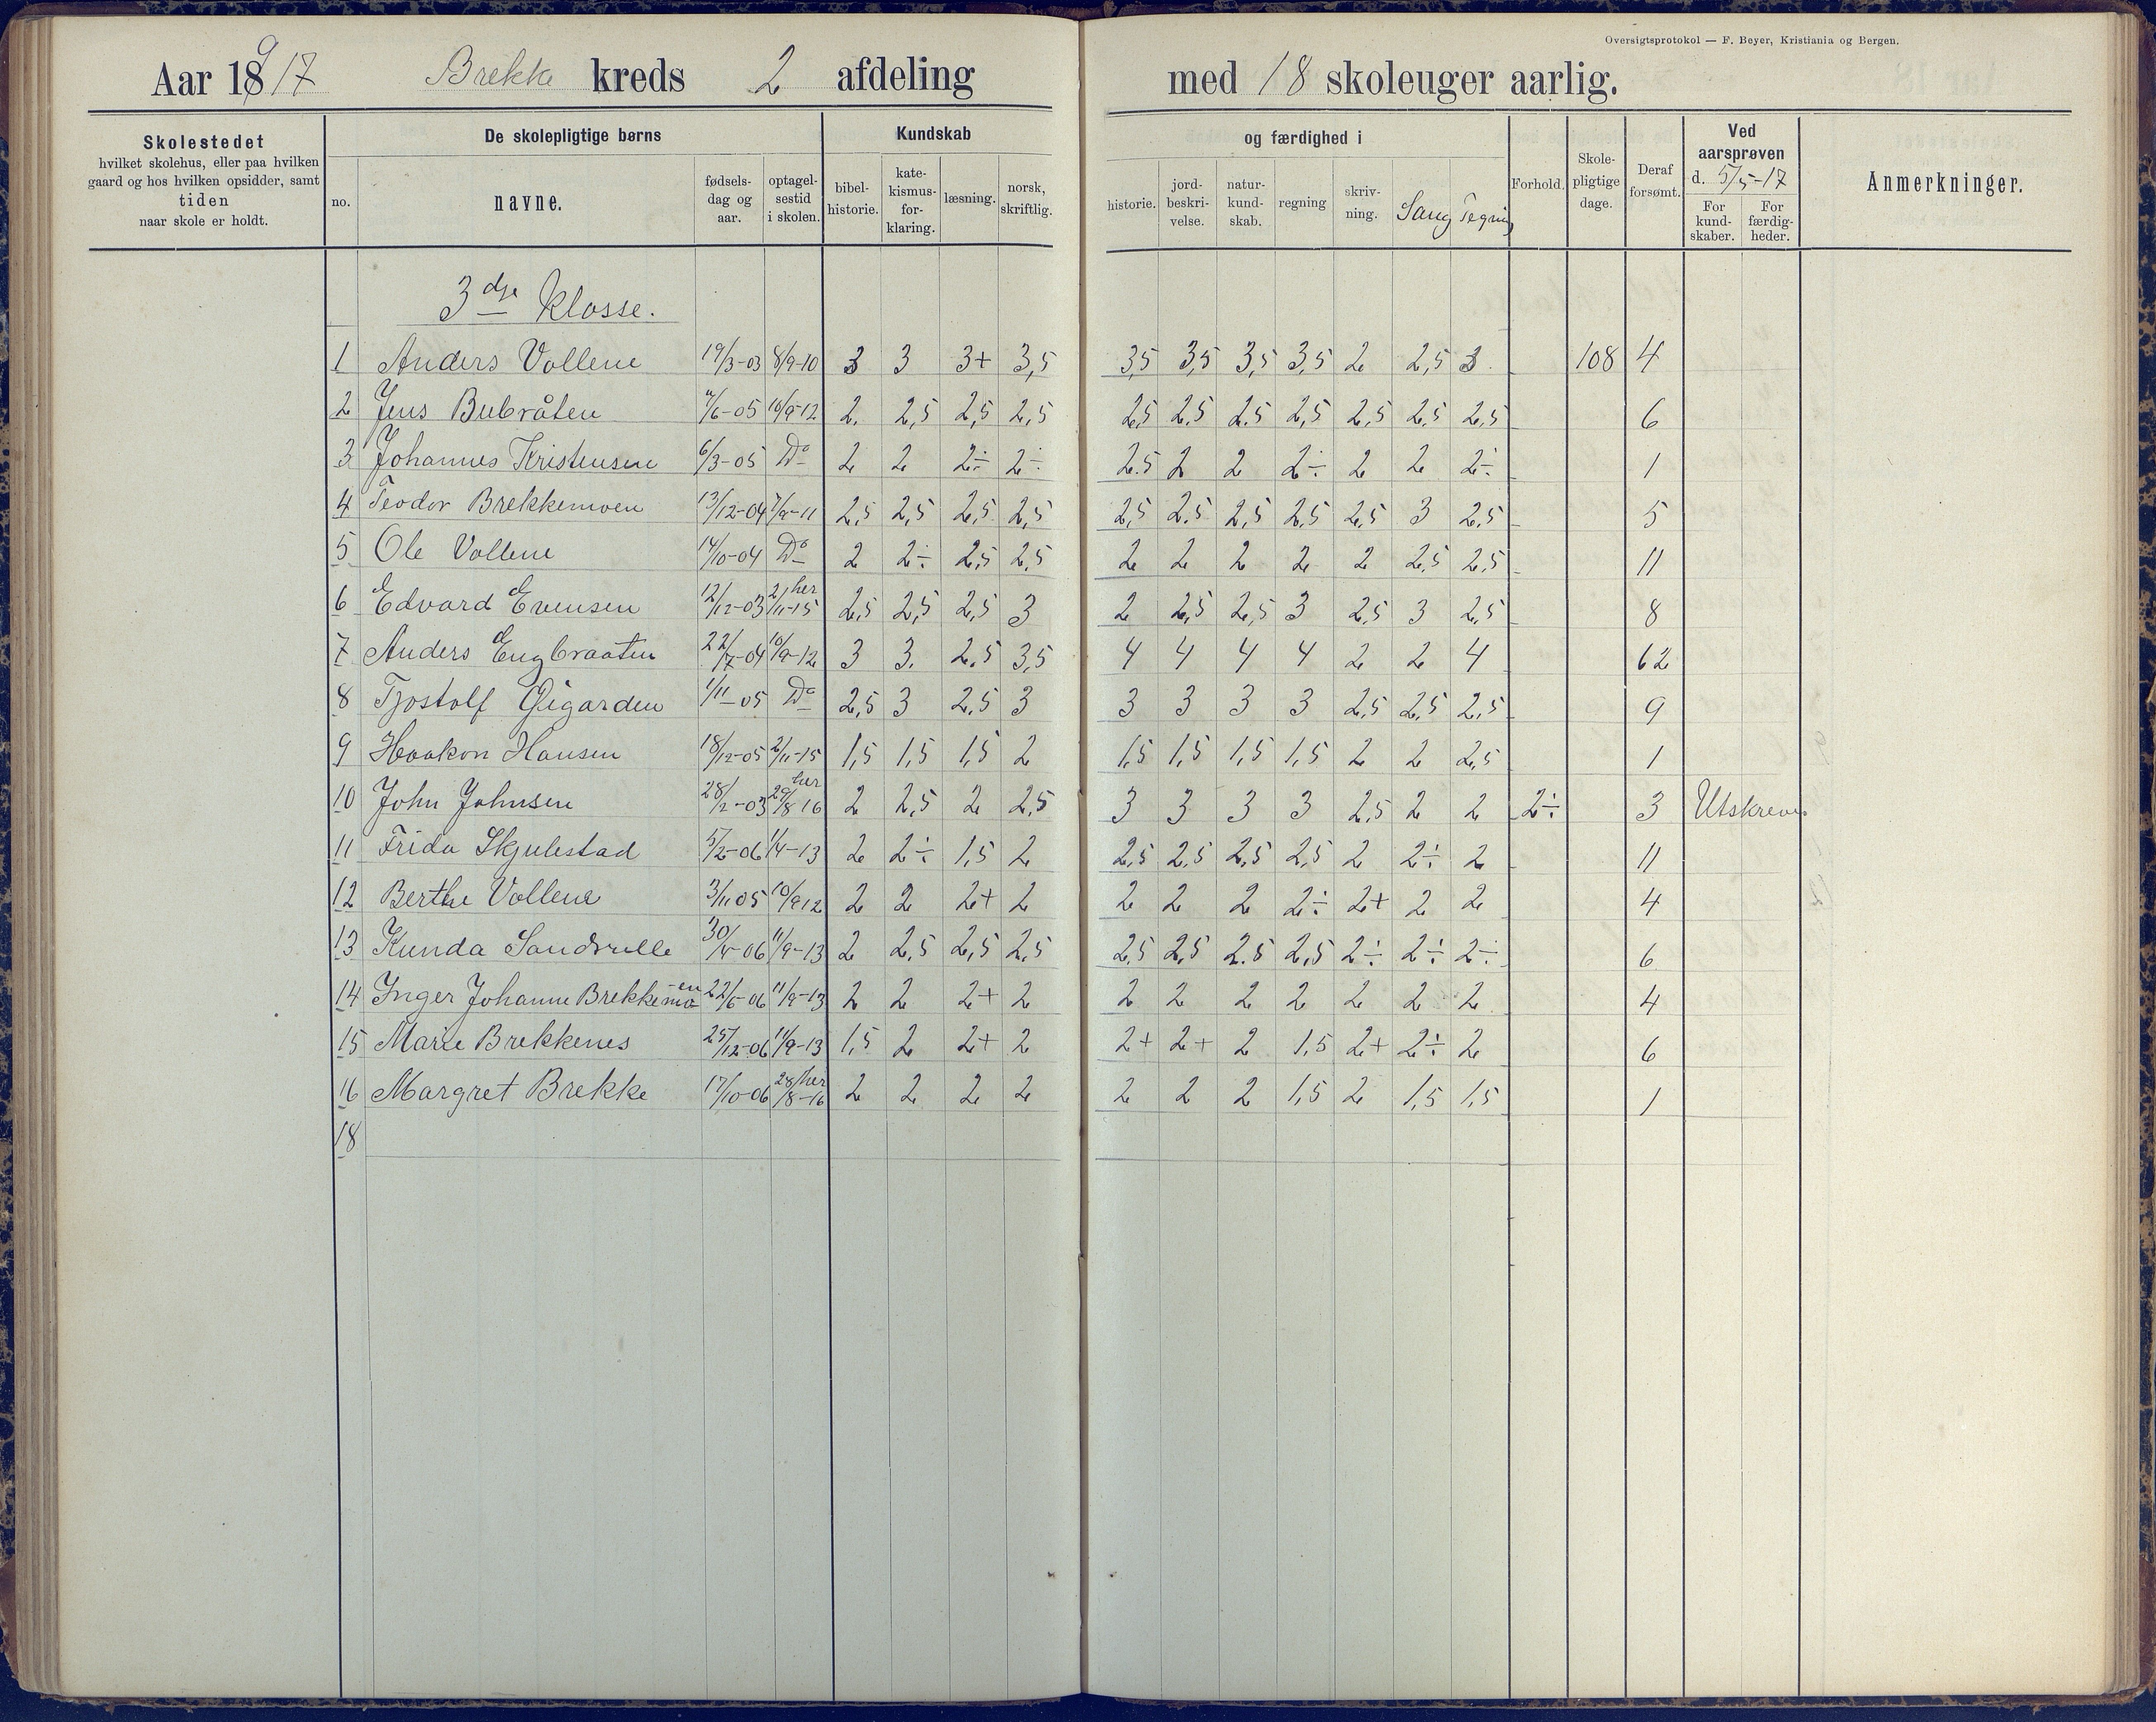 Oversigtsprotokol — F. Beyer, Kristiania og Bergen.
Aar 1917 Brekke kreds 2 afdeling med 18 skoleuger aarlig.
Skolestedet hvilket skolehus, eller paa hvilken gaard og hos hvilken opsidder, samt tiden naar skole er holdt.
De skolepligtige børns
no. navne. fødsels-dag og aar. optagel-sestid i skolen.
Kundskab og færdighed i
bibel-historie. kate-kismus-for-klaring. læsning. norsk, skriftlig. historie. jord-beskri-velse. natur-kund-skab. regning skriv-ning. Sang Tegning
Forhold. Skole-pligtige dage. Deraf forsømt.
Ved aarsprøven d. 5/5-17 For kund-skaber. For færdig-heder.
Anmerkninger.
3dje Klasse.
1 Anders Vollene 19/3-03 8/9-10 3 3 3+ 3,5 3,5 3,5 3,5 3,5 2 2,5 3 108 4
2 Jens Bubråten 4/6-05 10/9-12 2. 2,5 2,5 2,5 2,5 2,5 2,5 2,5 2,5 2,5 2,5 6
3 Johannes Kristensen 6/3-05 Do 2 2 2÷ 2÷ 2.5 2 2 2÷ 2 2 2÷ 1
4 Teodor Brekkemoen 13/12-04 7/9-11 2,5 2,5 2,5 2,5 2,5 2,5 2,5 2,5 2,5 3 2,5 5
5 Ole Vollene 14/10-04 Do 2 2÷ 2,5 2,5 2 2 2 2 2 2,5 2,5 11
6 Edvard Evensen 12/12-03 2/11-15 her 2,5 2,5 2,5 3 2 2,5 2,5 3 2,5 3 2,5 8
7 Anders Engbraaten 22/7-04 10/9-12 3 3. 2,5 3,5 4 4 4 4 2 2 4 62
8 Tjostolf Gigarden 1/11-05 Do 2,5 3 2,5 3 3 3 3 3 2,5 2,5 2,5 9
9 Haakon Hansen 18/12-05 2/11-15 1,5 1,5 1,5 2 1,5 1,5 1,5 1,5 2 2 2,5 1
10 John Johnsen 28/2-03 29/8 16 her 2 2,5 2 2,5 3 3 3 3 2,5 2 2 2÷ 3 Utskreven
11 Frida Skjulestad 5/2-06 1/4-13 2 2÷ 1,5 2 2,5 2,5 2,5 2,5 2 2÷ 2 11
12 Berthe Vollene 3/11 05 10/9 12 2 2 2+ 2 2 2 2 2÷ 2+ 2 2 4
13 Kunda Sandvulle 30/4-06 11/9-13 2 2,5 2,5 2,5 2,5 2,5 2.5 2,5 2÷ 2÷ 2÷ 6
14 Inger Johanne Brekkemo-en 22/6-06 11/9-13 2 2 2+ 2 2 2 2 2 2 2 2 4
15 Marie Brekkenes 25/12-06 11/9-13 1,5 2 2+ 2 2+ 2+ 2 1,5 2+ 2÷ 2 6
16 Margret Brekke 17/10-06 28/8-16 her 2 2 2 2 2 2 2 1,5 2 1,5 1,5 1
18